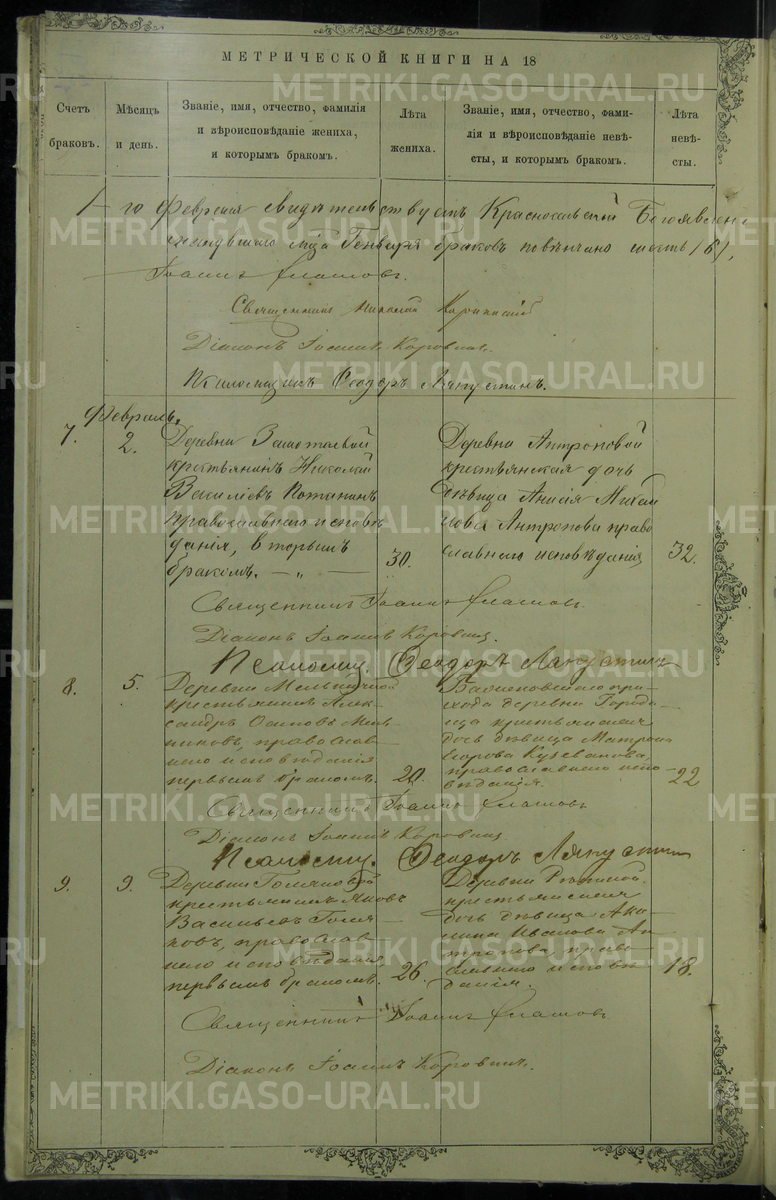 МЕТРИЧЕСКОЙ КНИГИ НА 18
Счетъ браковъ.
Мѣсяцъ и день.
Званіе, имя, отчество, фамилія
и вѣроисповѣданіе жениха,
и которымъ бракомъ.
Лѣта
жениха.
Званіе, имя, отчество, фами-
лія и вѣроисповѣданіе невѣ-
сты, и которымъ бракомъ.
Лѣта
невѣ-
сты.
1-го Февраля свидѣтельствуетъ Богоявлен
мѣца Генваря браковъ повѣнчано шесть (6),
Іоаннъ
Священникъ Николай
Діаконъ Іоаннъ Коровинъ.
Псаломщикъ Ѳеодоръ Ляпустинъ.
Февраль.
7.
2.
Деревни
крестьянинъ Николай
Василіевъ Потанинъ
православнаго исповѣ
данія, вторымъ
бракомъ. — „ —
30.
Деревни Антроповой
крестьянская дочь
дѣвица Анисія Михаи
лова Антропова право
славнаго исповѣданія
32.
Священникъ Іоаннъ
Діаконъ Іоаннъ Коровинъ.
Псаломщ. Ѳеодоръ Ляпустинъ
8.
5.
Деревни
крестьянинъ Алек-
сандръ Осиповъ Мель
никовъ, православ-
наго исповѣданія
первымъ бракомъ.
20.
при-
хода деревни Городи-
ща крестьянская
дочь дѣвица Матрона
Егорова
православнаго испо
вѣданія.
22
Священникъ Іоаннъ
Діаконъ Іоаннъ Коровинъ
Псаломщ. Ѳеодоръ Ляпустинъ
9.
9.
Деревни Голяковой
крестьянинъ Яковъ
Васильевъ Голя-
ковъ, православ-
наго исповѣданія,
первымъ бракомъ.
26
Деревни
крестьянская
дочь дѣвица Аку-
лина Иванова Ан-
тропова, право-
славнаго исповѣ-
данія.
18.
Священникъ Іоаннъ
Діаконъ Іоаннъ Коровинъ.
METRIKI.GASO-URAL.RU